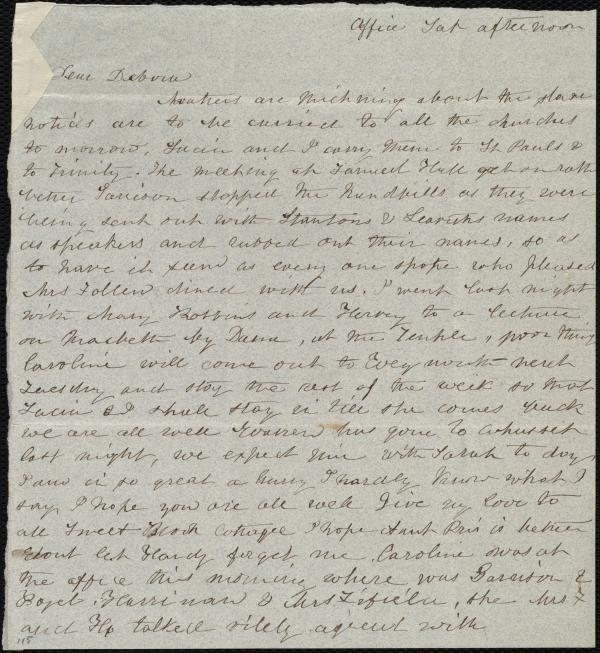 Office Sat afternoon
Dear Debora
Matters are thickning about the slave
notices are to be carried to all the churches
to morrow, Lucia and I carry them to St Pauls &
to Trinity. The meeting at Faneuil Hall got on rath
better Garrison stopped the handbills as they were
being sent out with Stantons & Leavitts names
as speakers and rubbed out their names, so as
to have it seem as every one spoke who pleased
Mrs Follen dined with us. I went last night
with Mary Robbins and Hervey to a lecture
on Macbeth by Dana, at the Temple, poor thing
Caroline will come out to Weymouth next
Tuesday and stay the rest of the week so that
Lucia & I shall stay in till she comes back
we are all well has gone to Cohasset
last night, we expect him with Sarah to day
I am in so great a hurry I hardly know what I
say, I hope you are all well Give my love to
all Sweet Cottage I hope Aunt Pris is better
dont let Hardy forget me. Caroline was at
the office this morning where was Garrison &
Harriman & Mrs Fifield, she Mrs F
and H talked vilely agreed with
118